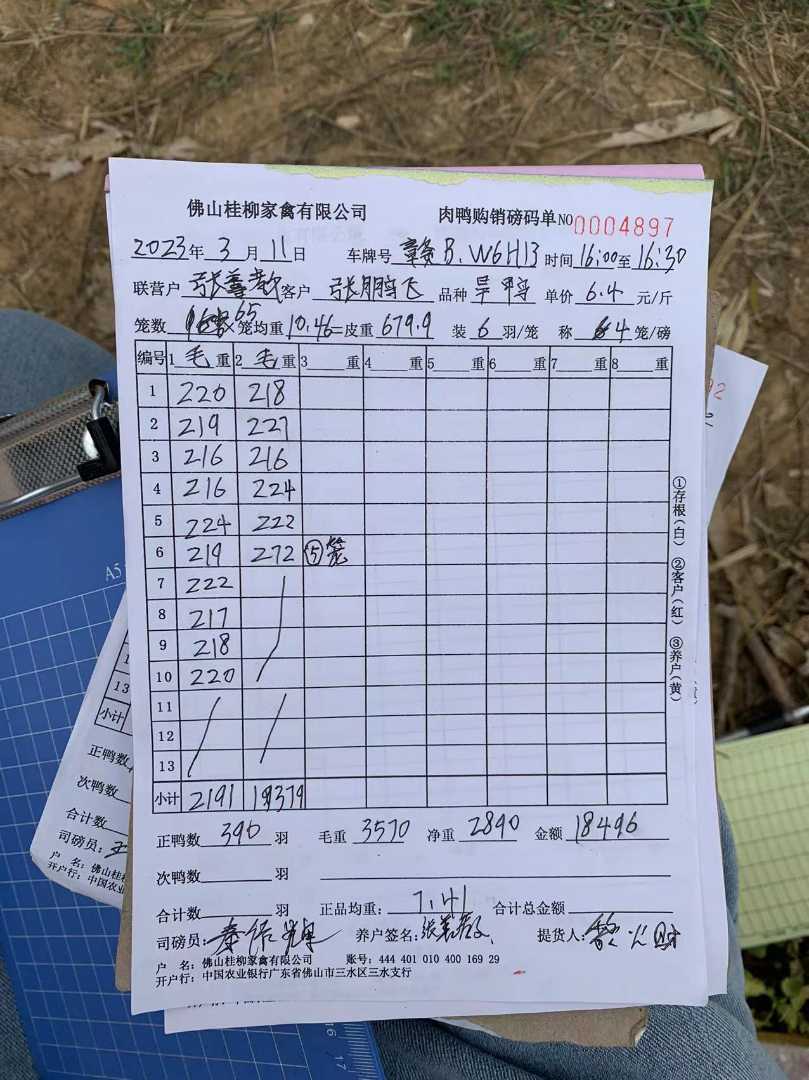 佛山桂柳家禽有限公司 肉鸭购销磅码单 NO 0004897
2023年 3月 11日 车牌号 赣B.W6H13 时间16:00至16:30
联营户 张 客户 张鹏飞 品种 旱鸭 单价 6.4 元/斤
笼数 65 笼均重 10.46=皮重 679.9 装 6 羽/笼 称 4 笼/磅
编号 1 毛 重 2 毛 重 3 重 4 重 5 重 6 重 7 重 8 重
1 220 218
2 219 227
3 216 216
4 216 224
5 224 222
6 219 272 ⑤笼
7 222
8 217
9 218
10 220
11
12
13
小计 2191 1379
①存根(白) ②客户(红) ③养户(黄)
正鸭数 390 羽 毛重 3570 净重 2890 金额 18496
次鸭数 羽
合计数 羽 正品均重: 7.41 合计总金额
司磅员: 养户签名: 提货人:
户 名: 佛山桂柳家禽有限公司 账号: 444 401 010 400 169 29
开户行: 中国农业银行广东省佛山市三水区三水支行
A5
13
小计
正鸭数
次鸭数
合计数
司磅员:
户 名: 佛山桂
开户行: 中国农业
16 17